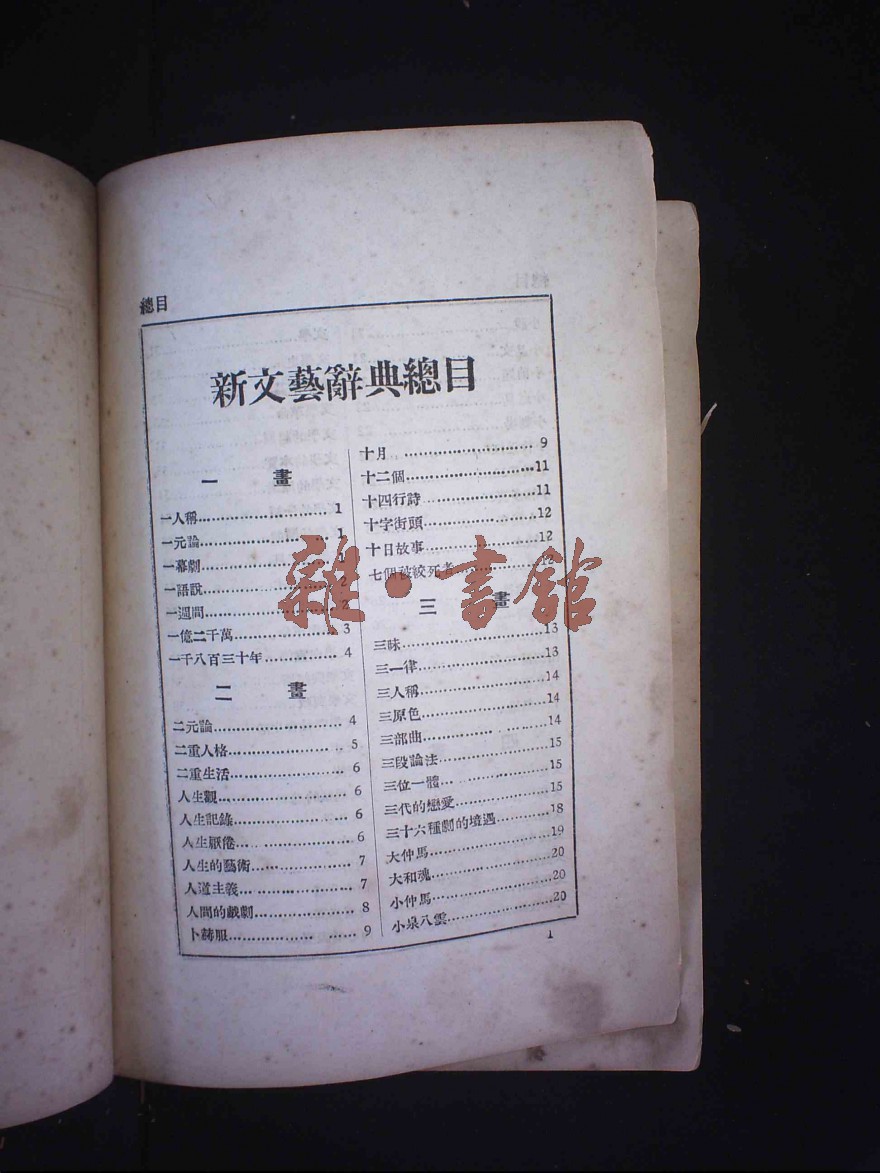 總目
新文藝辭典總目
一 畫
一人稱……1
一元論……1
一幕劇……1
一語說……2
一週間……2
一億二千萬……3
一千八百三十年……4
二 畫
二元論……4
二重人格……5
二重生活……6
人生觀……6
人生記錄……6
人生厭倦……6
人生的藝術……7
人道主義……7
人間的戲劇……8
卜赫服……9
十月……9
十二個……11
十四行詩……11
十字街頭……12
十日故事……12
七個被絞死者……12
三 畫
三昧……13
三一律……13
三人稱……14
三原色……14
三部曲……14
三段論法……15
三位一體……15
三代的戀愛……15
三十六種劇的境遇……18
大仲馬……19
大和魂……20
小仲馬……20
小泉八雲……20
1
雜·書館